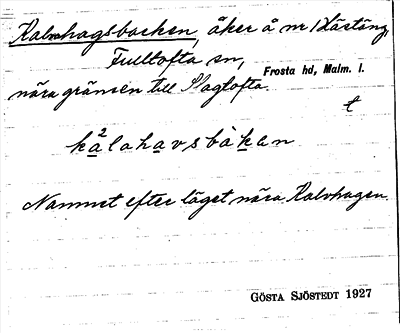 Kalvhagsbacken, åker å nr 1 Västäng,
Fulltofta sn,
Frosta hd, Malm. l.
nära gränsen till Slagtofta.
t
kalahavsbakan
Namnet efter läget nära Kalvhagen.
GÖSTA SJÖSTEDT 1927